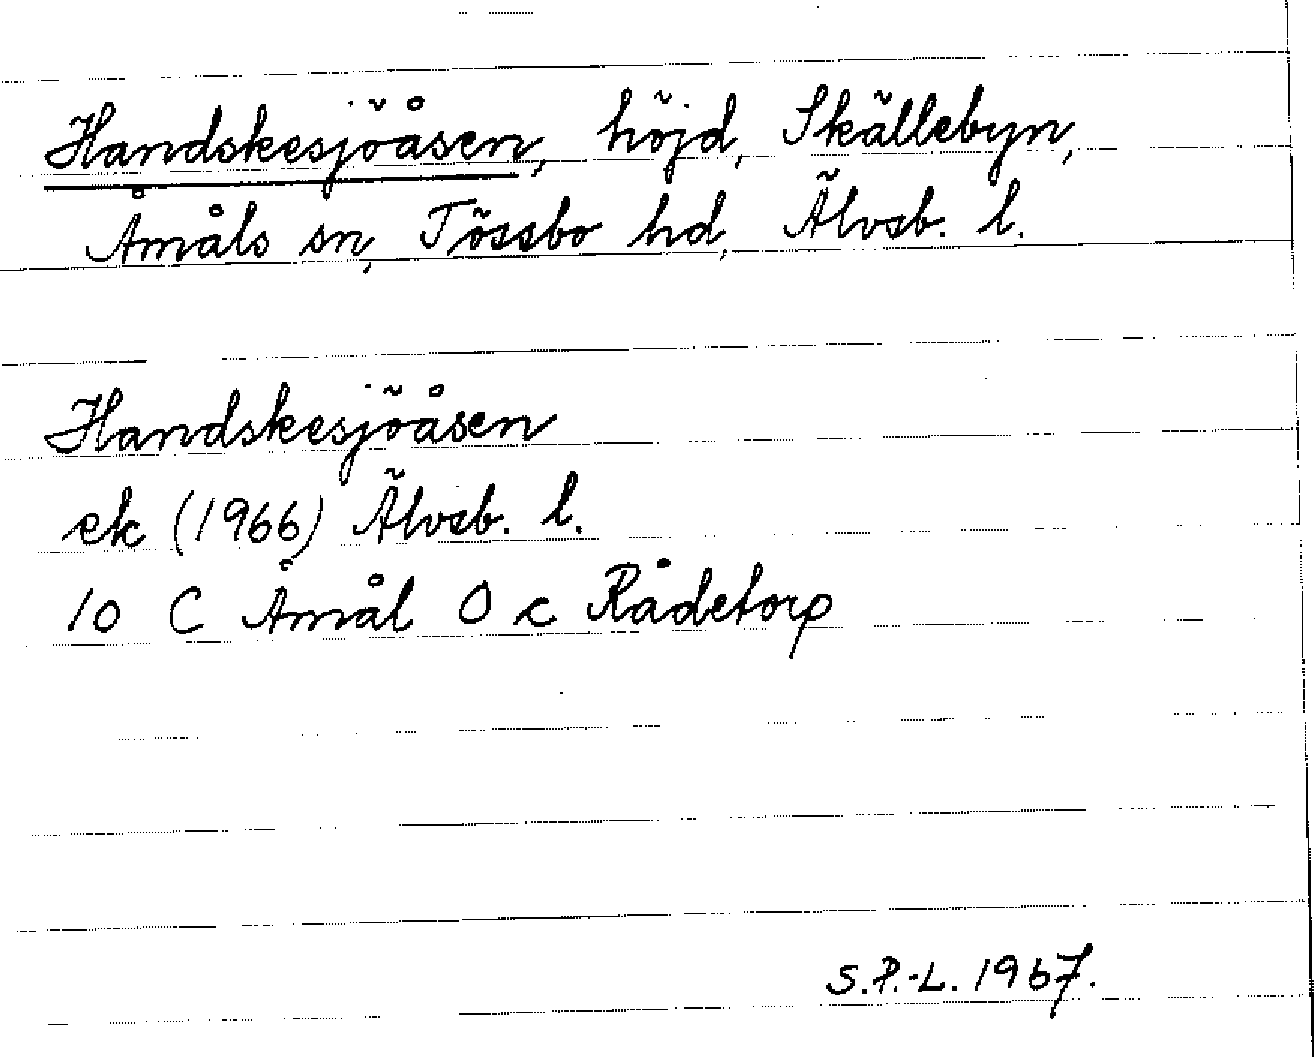 Handskesjöåsen, höjd, Skällebyn,
Åmåls sn, Tössbo hd, Älvsb. l.
Handskesjöåsen
ek (1966) Älvsb. l.
10 C Åmål O c Rådetorp
S.P.-L. 1967.